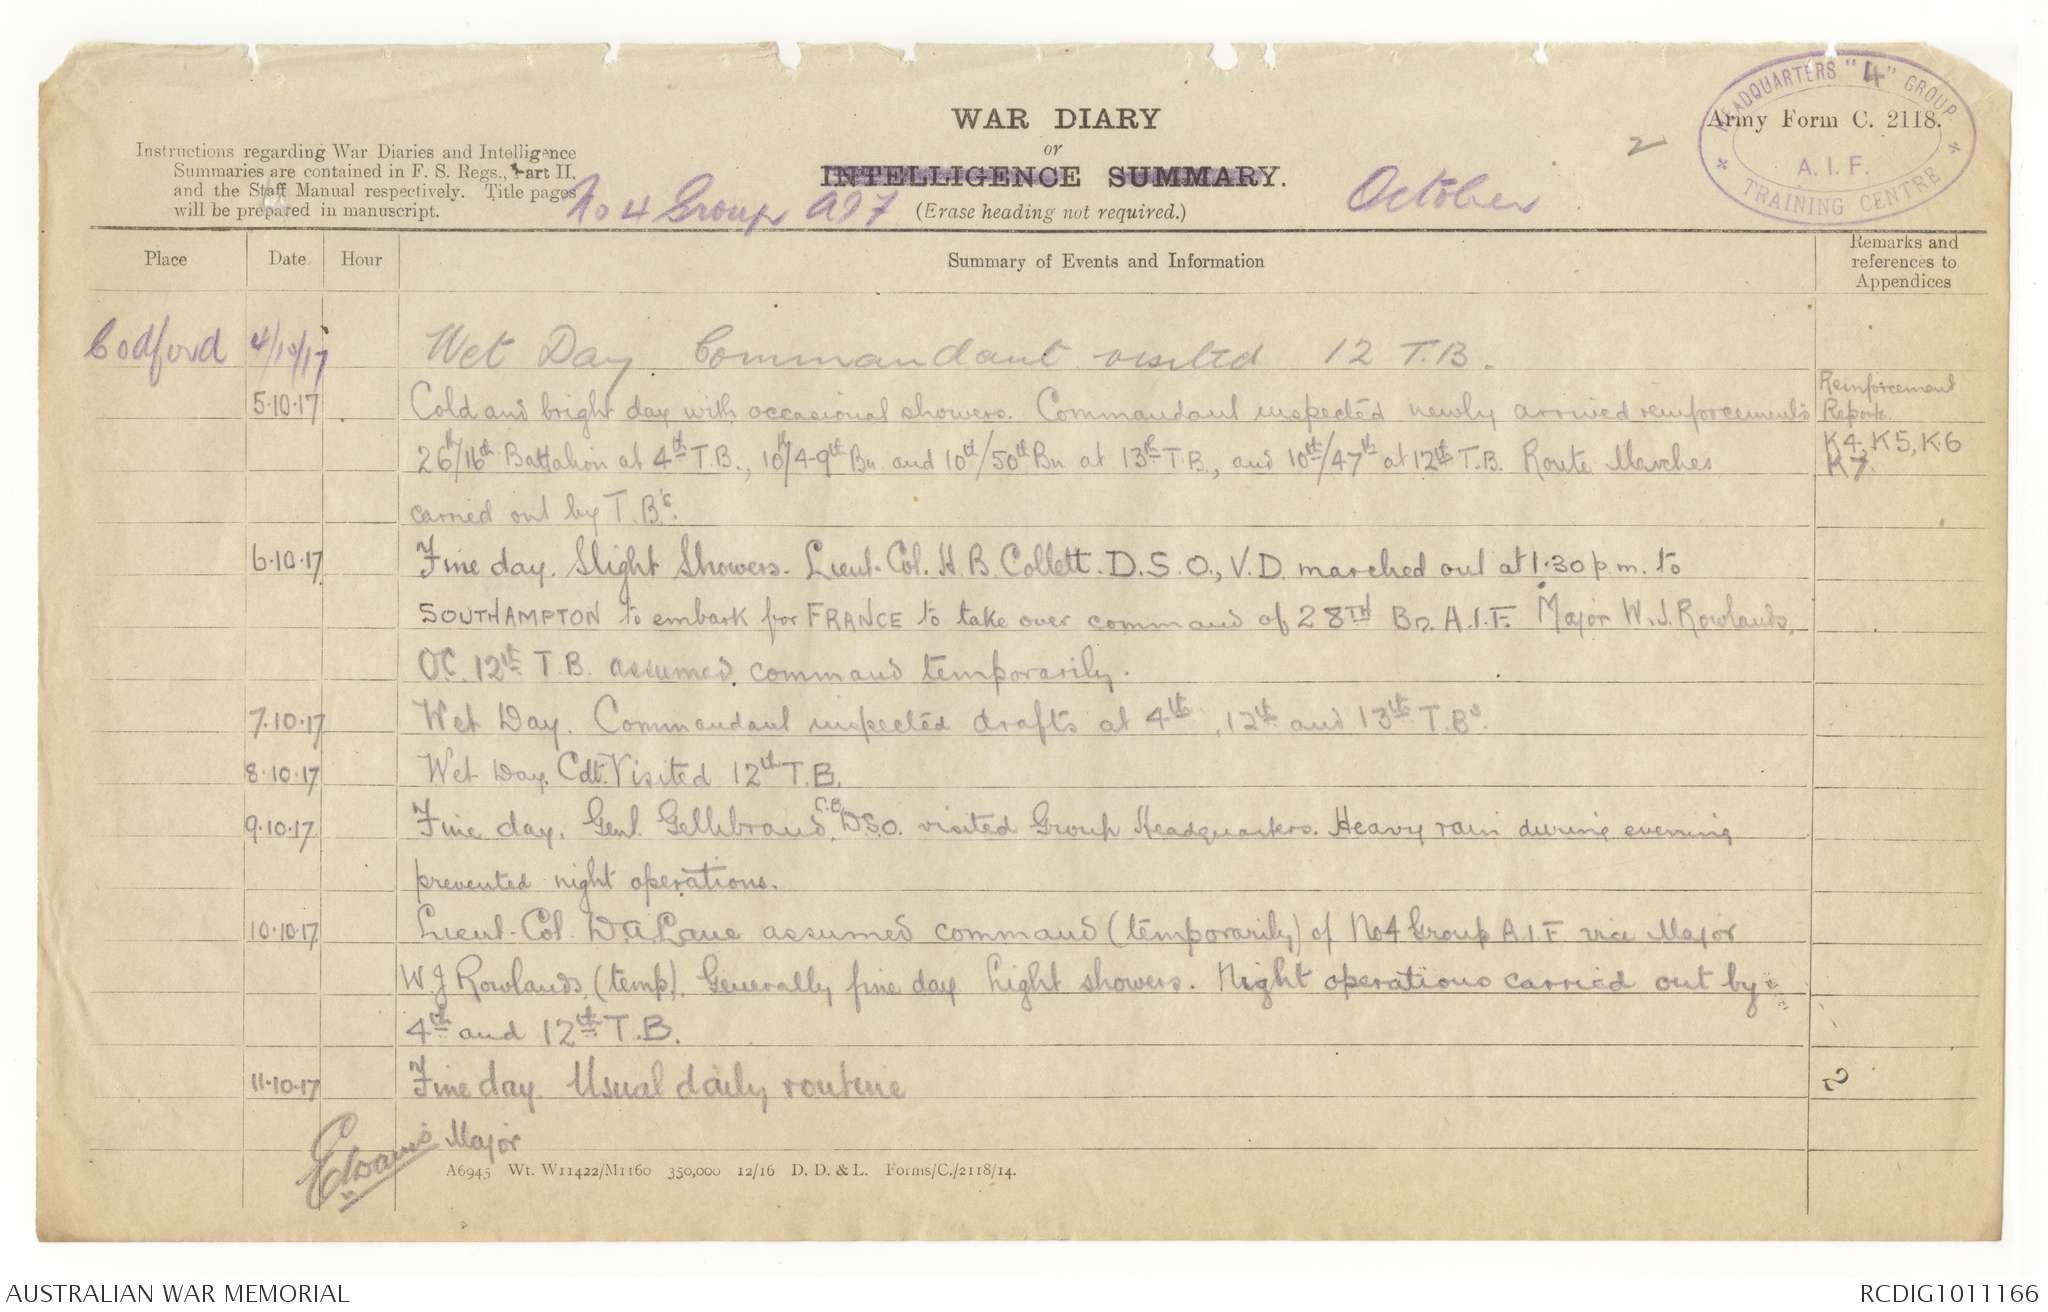 WAR DIARY
or
INTELLIGENCE SUMMARY.
(Erase heading not required.)
Instructions regarding War Diaries and Intelligence
Summaries are contained in F. S. Regs., Part II.
and the Staff Manual respectively. Title pages
will be prepared in manuscript.
No 4 Group AIF
October
2
Army Form C. 2118.
HEADQUARTERS "4" GROUP
A.I.F.
TRAINING CENTRE
Place Date Hour Summary of Events and Information Remarks and references to Appendices
Codford 4/10/17 Wet Day. Commandant visited 12 T.B.
5.10.17 Cold and bright day with occasional showers. Commandant inspected newly arrived reinforcements Reinforcement Reports.
26th/16th Battalion at 4th T.B., 10/49th Bn and 10th/50th Bn at 13th T.B., and 10th/47th at 12th T.B. Route Marches K4, K5, K6 K7.
carried out by T.B's.
6.10.17 Fine day. Slight Showers. Lieut. Col. H. B. Collett. D.S.O., V.D. marched out at 1.30 p.m. to
SOUTHAMPTON to embark for FRANCE to take over command of 28TH Bn. A.I.F. Major W. J. Rowlands,
OC. 12th T.B. assumed command temporarily.
7.10.17 Wet Day. Commandant inspected drafts at 4th, 12th and 13th T.Bs.
8.10.17 Wet Day. Cdt. Visited 12th T.B.
9.10.17 Fine day. Genl. Gellibrand, C.B. D.S.O. visited Group Headquarters. Heavy rain during evening
prevented night operations.
10.10.17 Lieut-Col. D.A. Lane assumed command (temporarily) of No4 Group A.I.F vice Major
W. J Rowlands, (temp). Generally fine day Light showers. Night operations carried out by
4th and 12th T.B.
11.10.17 Fine day. Usual daily routine
2
Major
A6945 Wt. W11422/M1160 350,000 12/16 D. D. & L. Forms/C./2118/14.
AUSTRALIAN WAR MEMORIAL
RCDIG1011166